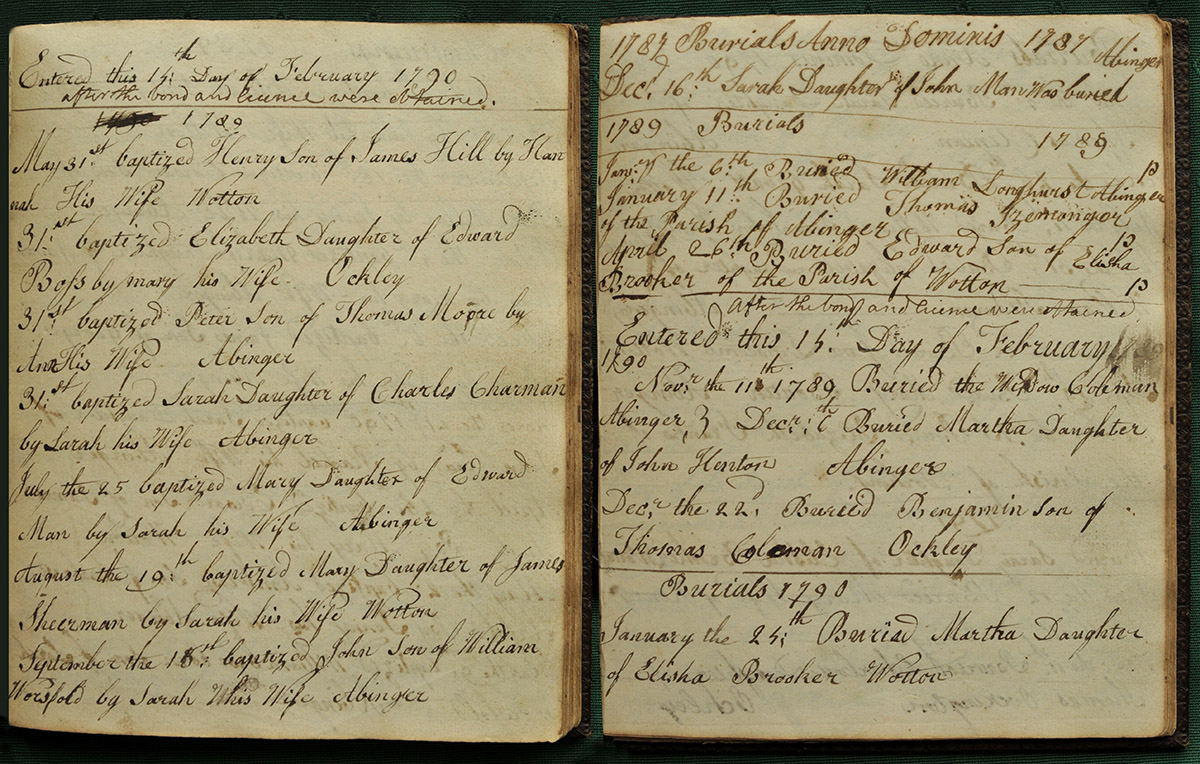 Entered this 15:th Day of February 1790
after the bond and licence were obtained.
1789
May 31st baptized Henry Son of James Hill by Han
nah His Wife Wotton
31:st baptized Elizabeth Daughter of Edward
Boss by mary his Wife Ockley
31st baptized Peter Son of Thomas Moore by
Ann His Wife Abinger
31:st baptized Sarah Daughter of Charles Charman
by Sarah his Wife Abinger
July the 25 baptized Mary Daughter of Edward
Man by Sarah his Wife Abinger
August the 19:th baptized Mary Daughter of James
Sheerman by Sarah his Wife Wotton
September the 18:st baptized John Son of William
Worsfold by Sarah his Wife Abinger
1787 Burials Anno Dominis 1787
Abinger
Decr. 16:th Sarah Daughter of John Man Was buried
1789 Burials 1789
Janry the 6:th Buried William Longhurst Abinger p
January 11th Buried Thomas Izemonger
of the Parish of Abinger p
April 26th Buried Edward Son of Elisha
Brooker of the Parish of Wotton p
After the bond and licence were obtained
Entered this 15: Day of February
1790
Novr. the 11th 1789 Buried the Widow Coleman
Abinger, Decr: Buried Martha Daughter
of John Henton Abinger
Decr. the 22d. Buried Benjamin Son of
Thomas Coleman Ockley
Burials 1790
January the 25:th Buried Martha Daughter
of Elisha Brooker Wotton